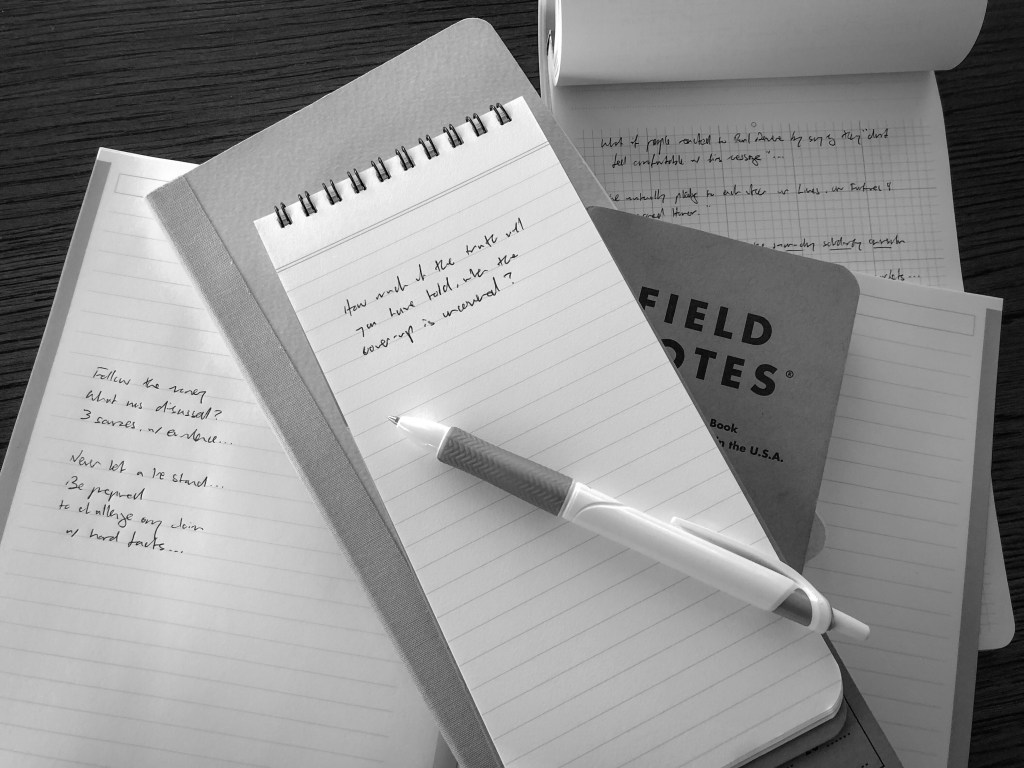 How much of the truth will
you have told, when the
cover-up is uncovered?
Follow the money
What was discussed?
3 sources, w/ evidence...
Never let a lie stand...
Be prepared
to challenge any claim
w/ hard facts...
What if people reacted to Paul Revere by saying they "don't
feel comfortable w/ his message"...
mutually pledge to each other our Lives, our Fortunes &
Honor.
FIELD
OTES®
Book
in the U.S.A.